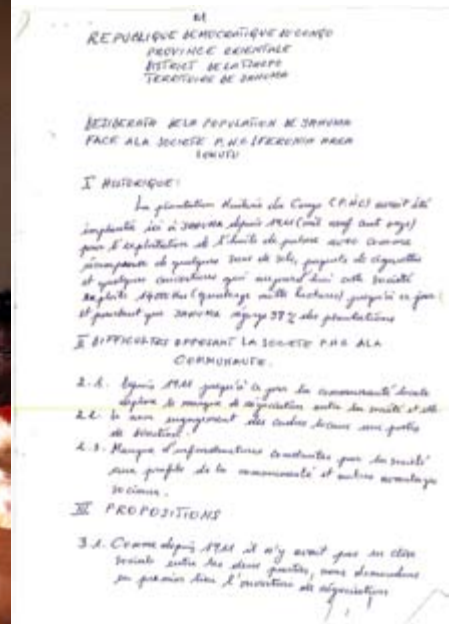 REPUBLIQUE DEMOCRATIQUE DU CONGO
PROVINCE ORIENTALE
DISTRICT DE LA TSHOPO
TERRITOIRE DE YAHUMA
DESIDERATA DE LA POPULATION DE YAHUMA
FACE A LA SOCIETE P.H.C/FERONIA AREA
LOKUTU
I HISTORIQUE:
La plantation Huilerie du Congo (P.H.C) avait été
implantée ici à YAHUMA depuis 1911 (mil neuf cent onze)
pour l'exploitation de l'huile de palme avec comme
récompense de quelques sacs de sels, paquets de cigarettes
et quelques couvertures qui aujourd'hui cette société
exploite 14000 Ha (quatorze mille hectares) jusqu'à ce jour
et pourtant que YAHUMA 98% des plantations
II DIFFICULTES OPPOSANT LA SOCIETE P.H.C A LA
COMMUNAUTE.
2.1. Depuis 1911 jusqu'à ce jour la communauté locale
déplore le manque de négociation entre la société et elle
2.2. Le non engagement des cadres locaux aux postes
de direction.
2.3. Manque d'infrastructures construites par la société
aux profits de la communauté et autres avantages
sociaux.
III PROPOSITIONS
3.1. Comme depuis 1911 il n'y avait pas
entre les deux parties, nous demandons
en premier lieu l'ouverture de négociation